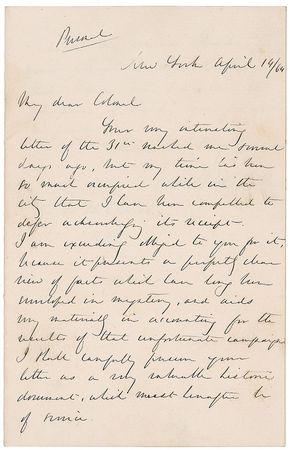 Personal
New York April 14/64
My dear Colonel
Your very interesting
letter of the 31st reached me several
days ago, but my time has been
so much occupied while in the
city that I have been compelled to
defer acknowledging its receipt.
I am exceeding obliged to you for it,
because it presents a perfectly clear
view of facts which have long been
enveloped in mystery, and aids
very materially in accounting for the
results of that unfortunate campaign
I shall carefully preserve your
letter as a very valuable historic
document, which must hereafter be
of service.